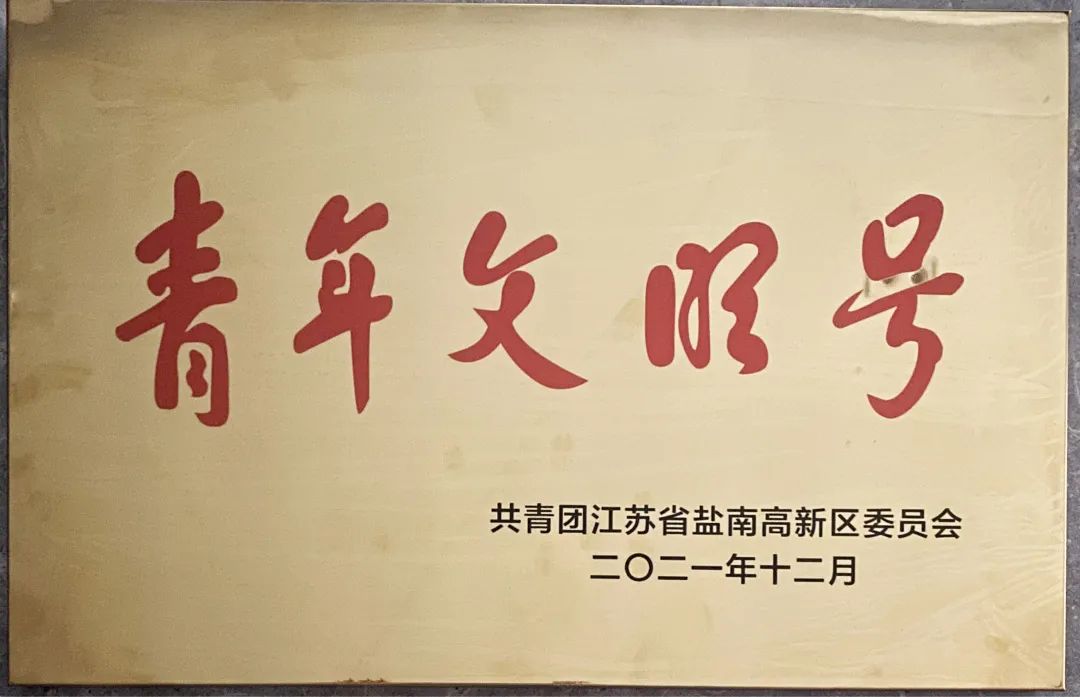 青年文明号
共青团江苏省盐南高新区委员会
二〇二一年十二月